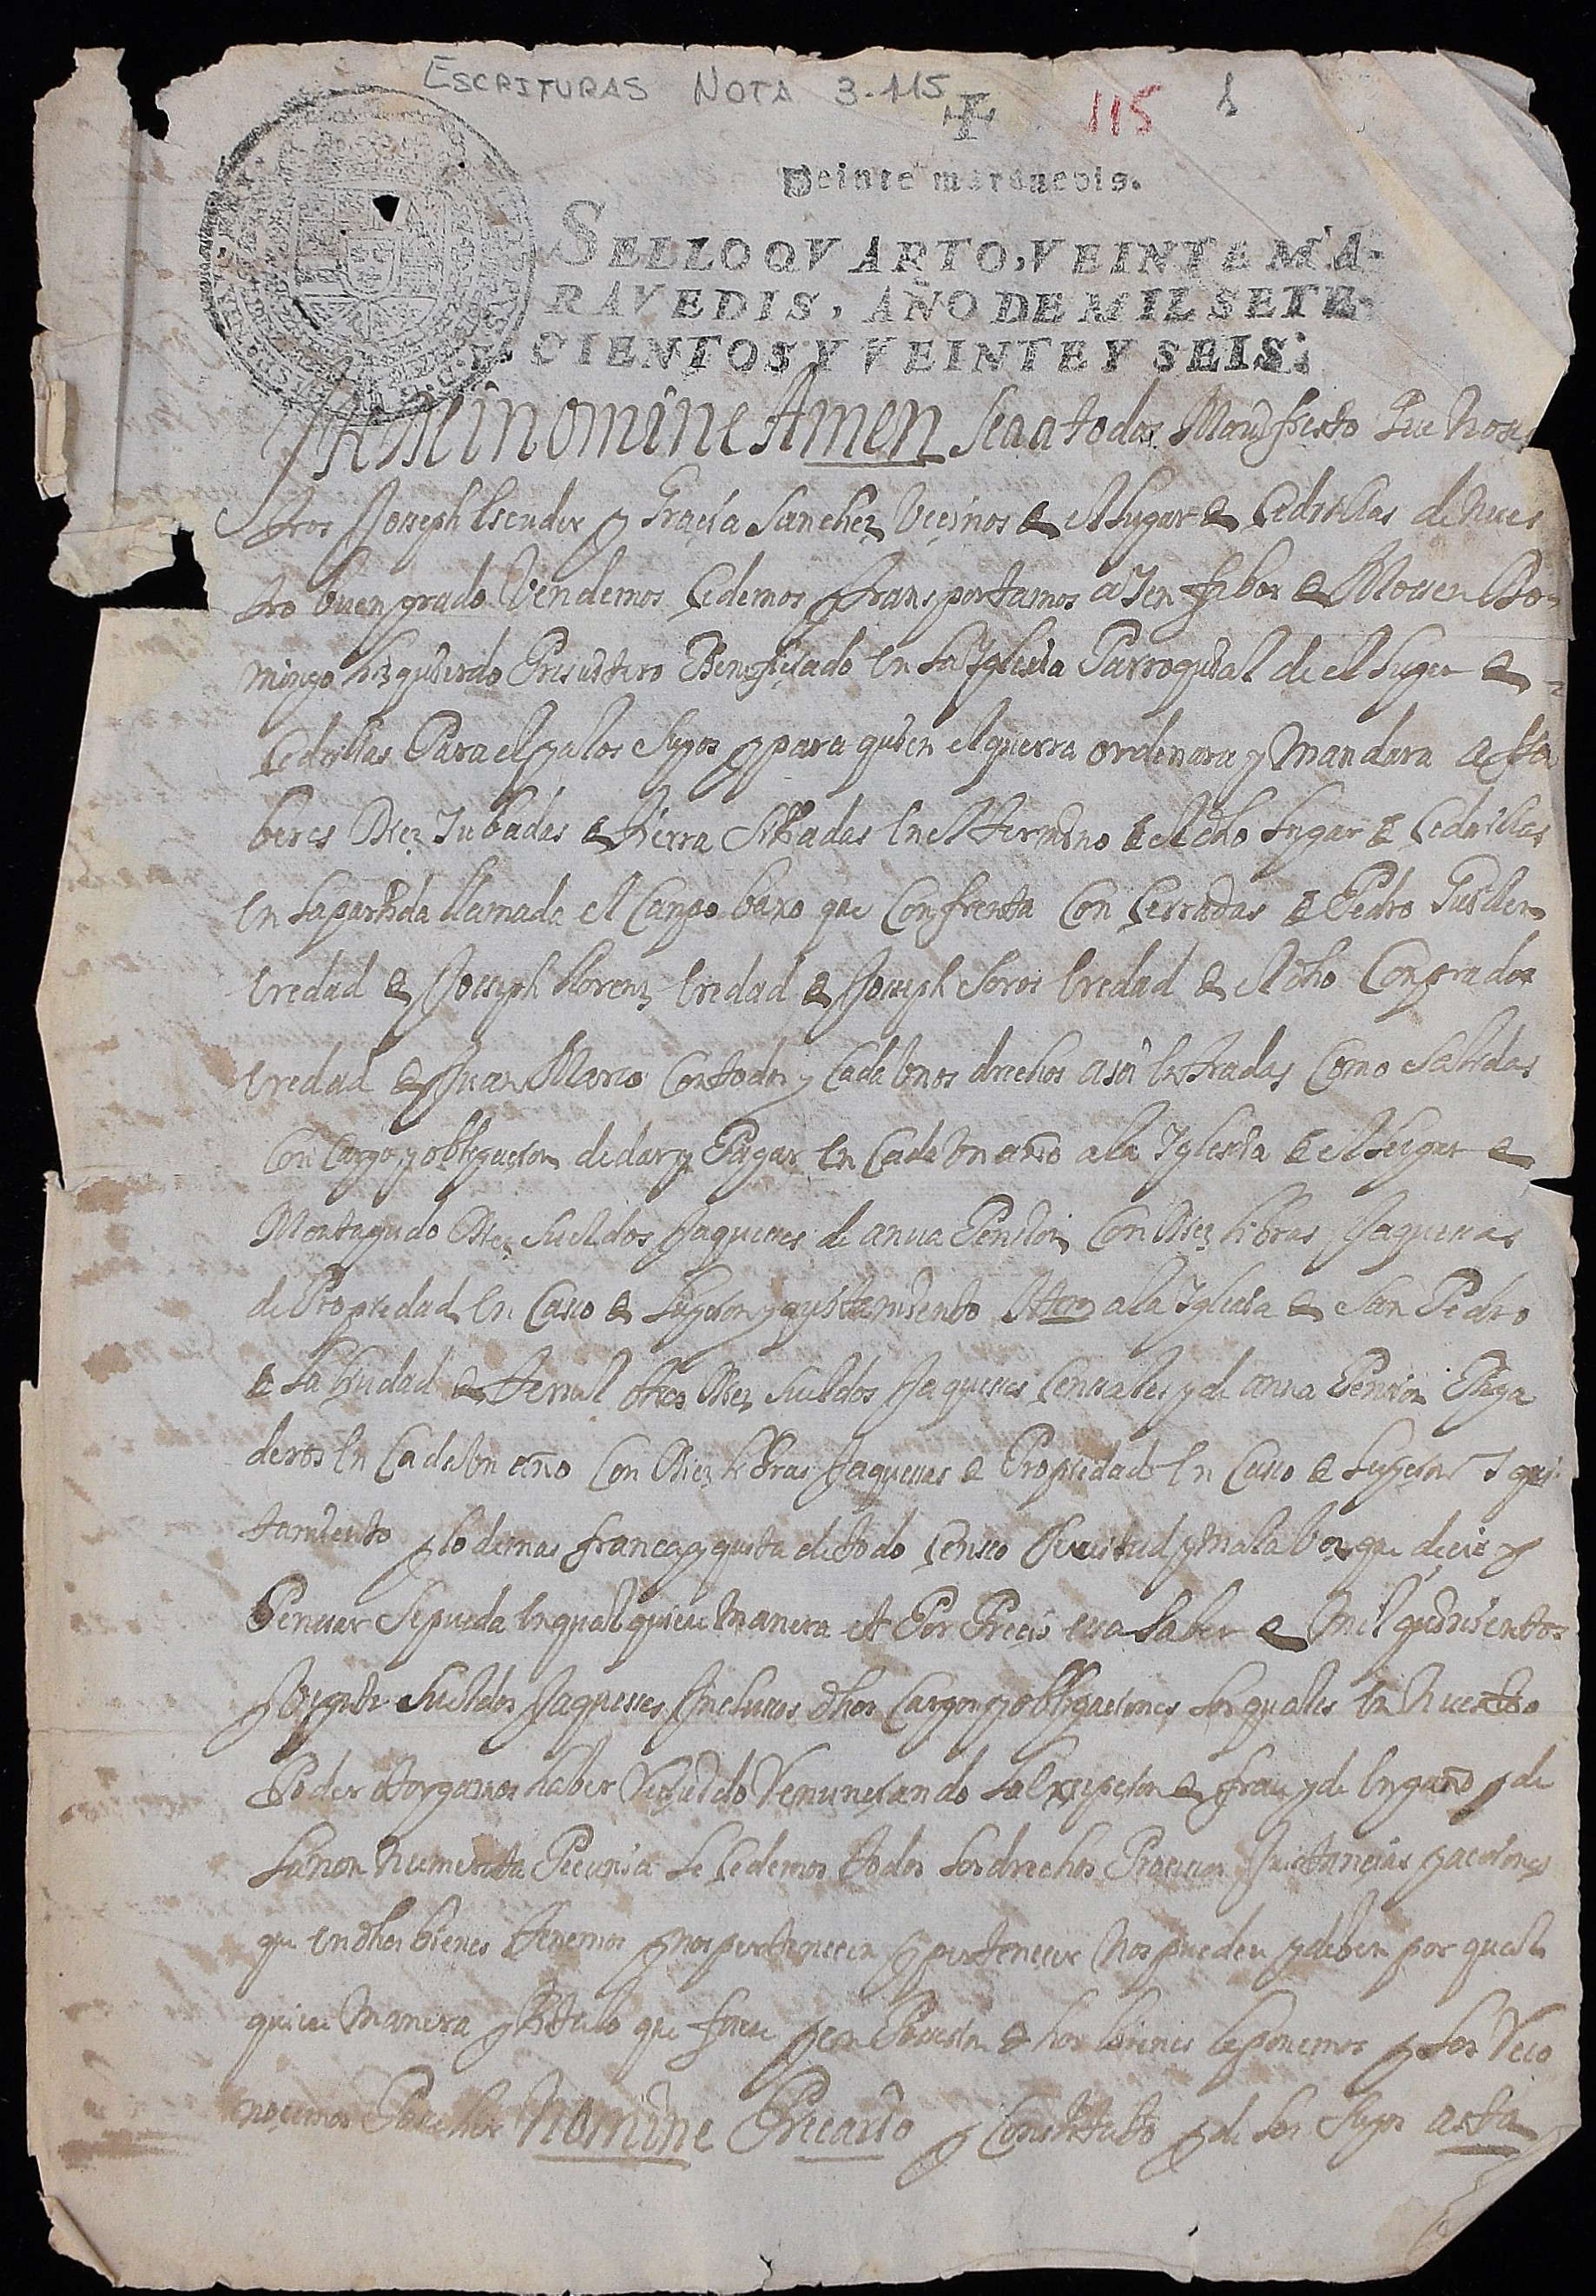 ESCRITURAS NOTA 3-115
115 1
Veinte marauedis.
SELLO QVARTO, VEINTE MA-
RAVEDIS, AÑO DE MIL SETE-
CIENTOS Y VEINTE Y SEIS.
In Dei nomine Amen Sea a todos Manifiesto Que Noso
tros Joseph Escuder y Graçia Sanchez Veçinos de el lugar de Çedrillas de nues
tro buen grado Vendemos Çedemos y transportamos a y en fabor de Mosen Do-
mingo Izquierdo Presuitero Benefiçiado en la Yglesia Parroquial de el lugar de
Çedrillas Para el y a los Suyos y para quien el querra ordenara y Mandara Es a sa
beres Diez Jubadas de tierra Sitiadas en el termino de el dho lugar de Çedrillas
en la partida llamada el Canpo baxo que Confrenta Con Çerradas de Pedro Guillen
eredad de Joseph Llorenz eredad de Joseph Soros eredad de el dho Conprador
eredad de Juan Marco Con todos y Cada Unos drechos asi entradas Como Salidas
Con Cargo y obligaçion de dar y Pagar en Cada Un año a la Yglesia de el lugar de
Monteagudo Diez Sueldos Jaqueses de anua Pension Con Diez libras Jaquesas
de Propiedad en Caso de luyçion y quitamiento Item a la Yglesia de San Pedro
de la Çiudad de Teruel otros Diez Sueldos Jaqueses Çensales y de anua Pension Paga
deros en Cada Un año Con Diez libras Jaquesas de Propiedad en Caso de luyçion Y qui
tamiento y lo demas franca y quita de todo Çenso Vinculo y mala Voz que deçir y
Pensar Se pueda en qual quiere manera Et Por Preçio es a saber de Mil quinientos
y Veynte Sueldos Jaqueses Inclusos dhos Cargos y obligaçiones los quales en nuestro
Poder otorgamos haber Reçiuido Renunçiando la Exçepçion de frau y de engaño y de
la non numerata Pecunia Le Çedemos todos los drechos Proçesos Instançias y acçiones
que en dhos bienes tenemos y nos perteneçen y perteneçer nos pueden y deben por qual
quiere manera y titulo que fuere y en Posesion de dhos bienes le ponemos y los Reco
noçemos Poseher nomine Precario y Constituto y de los Suyos asta